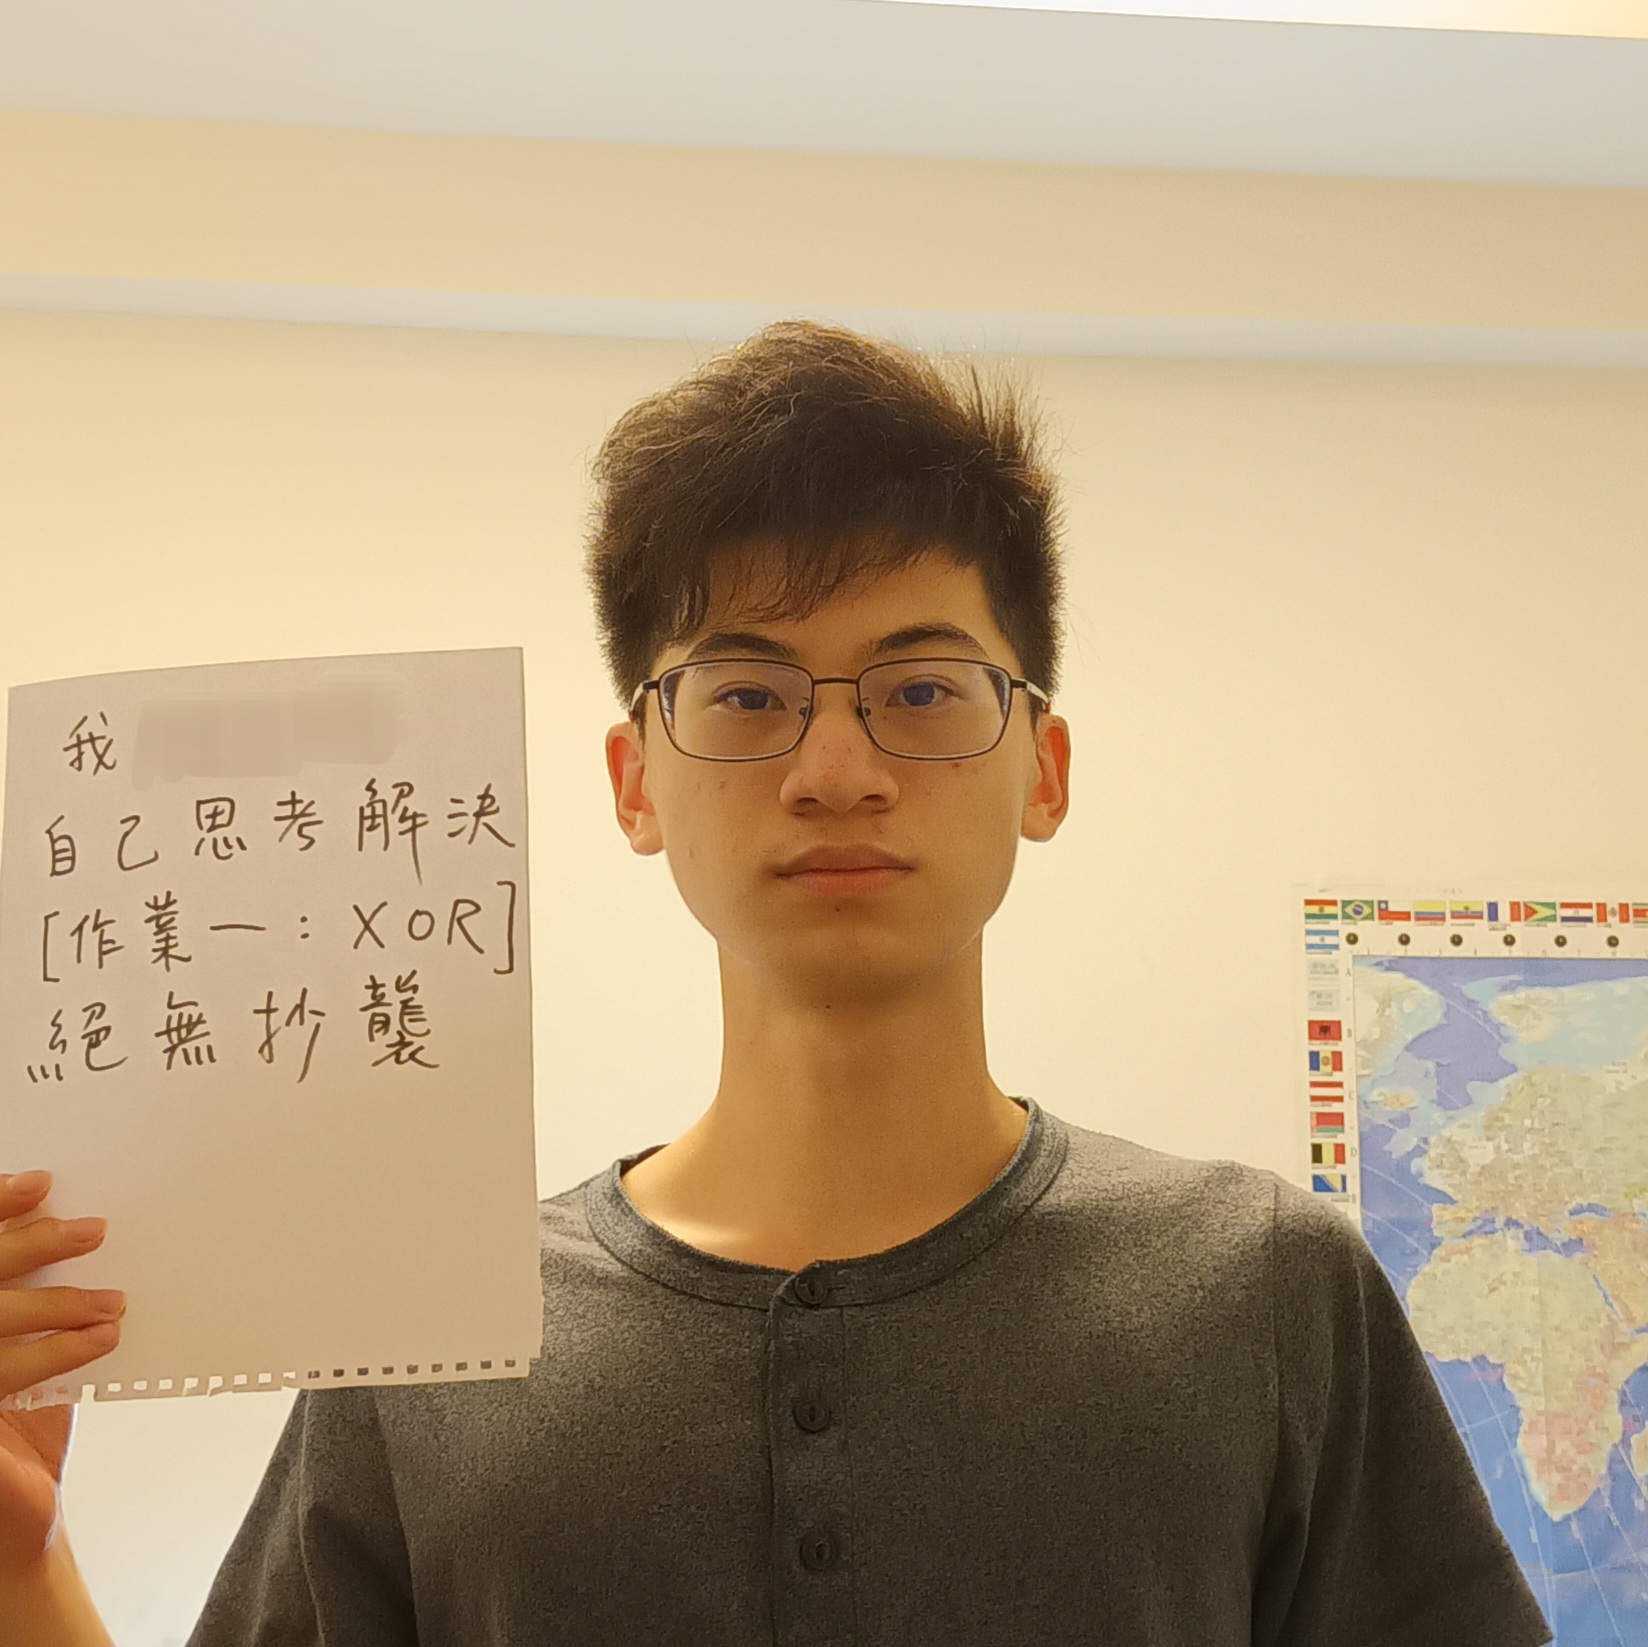 我
自己思考解決
[作業一：XOR]
絕無抄襲